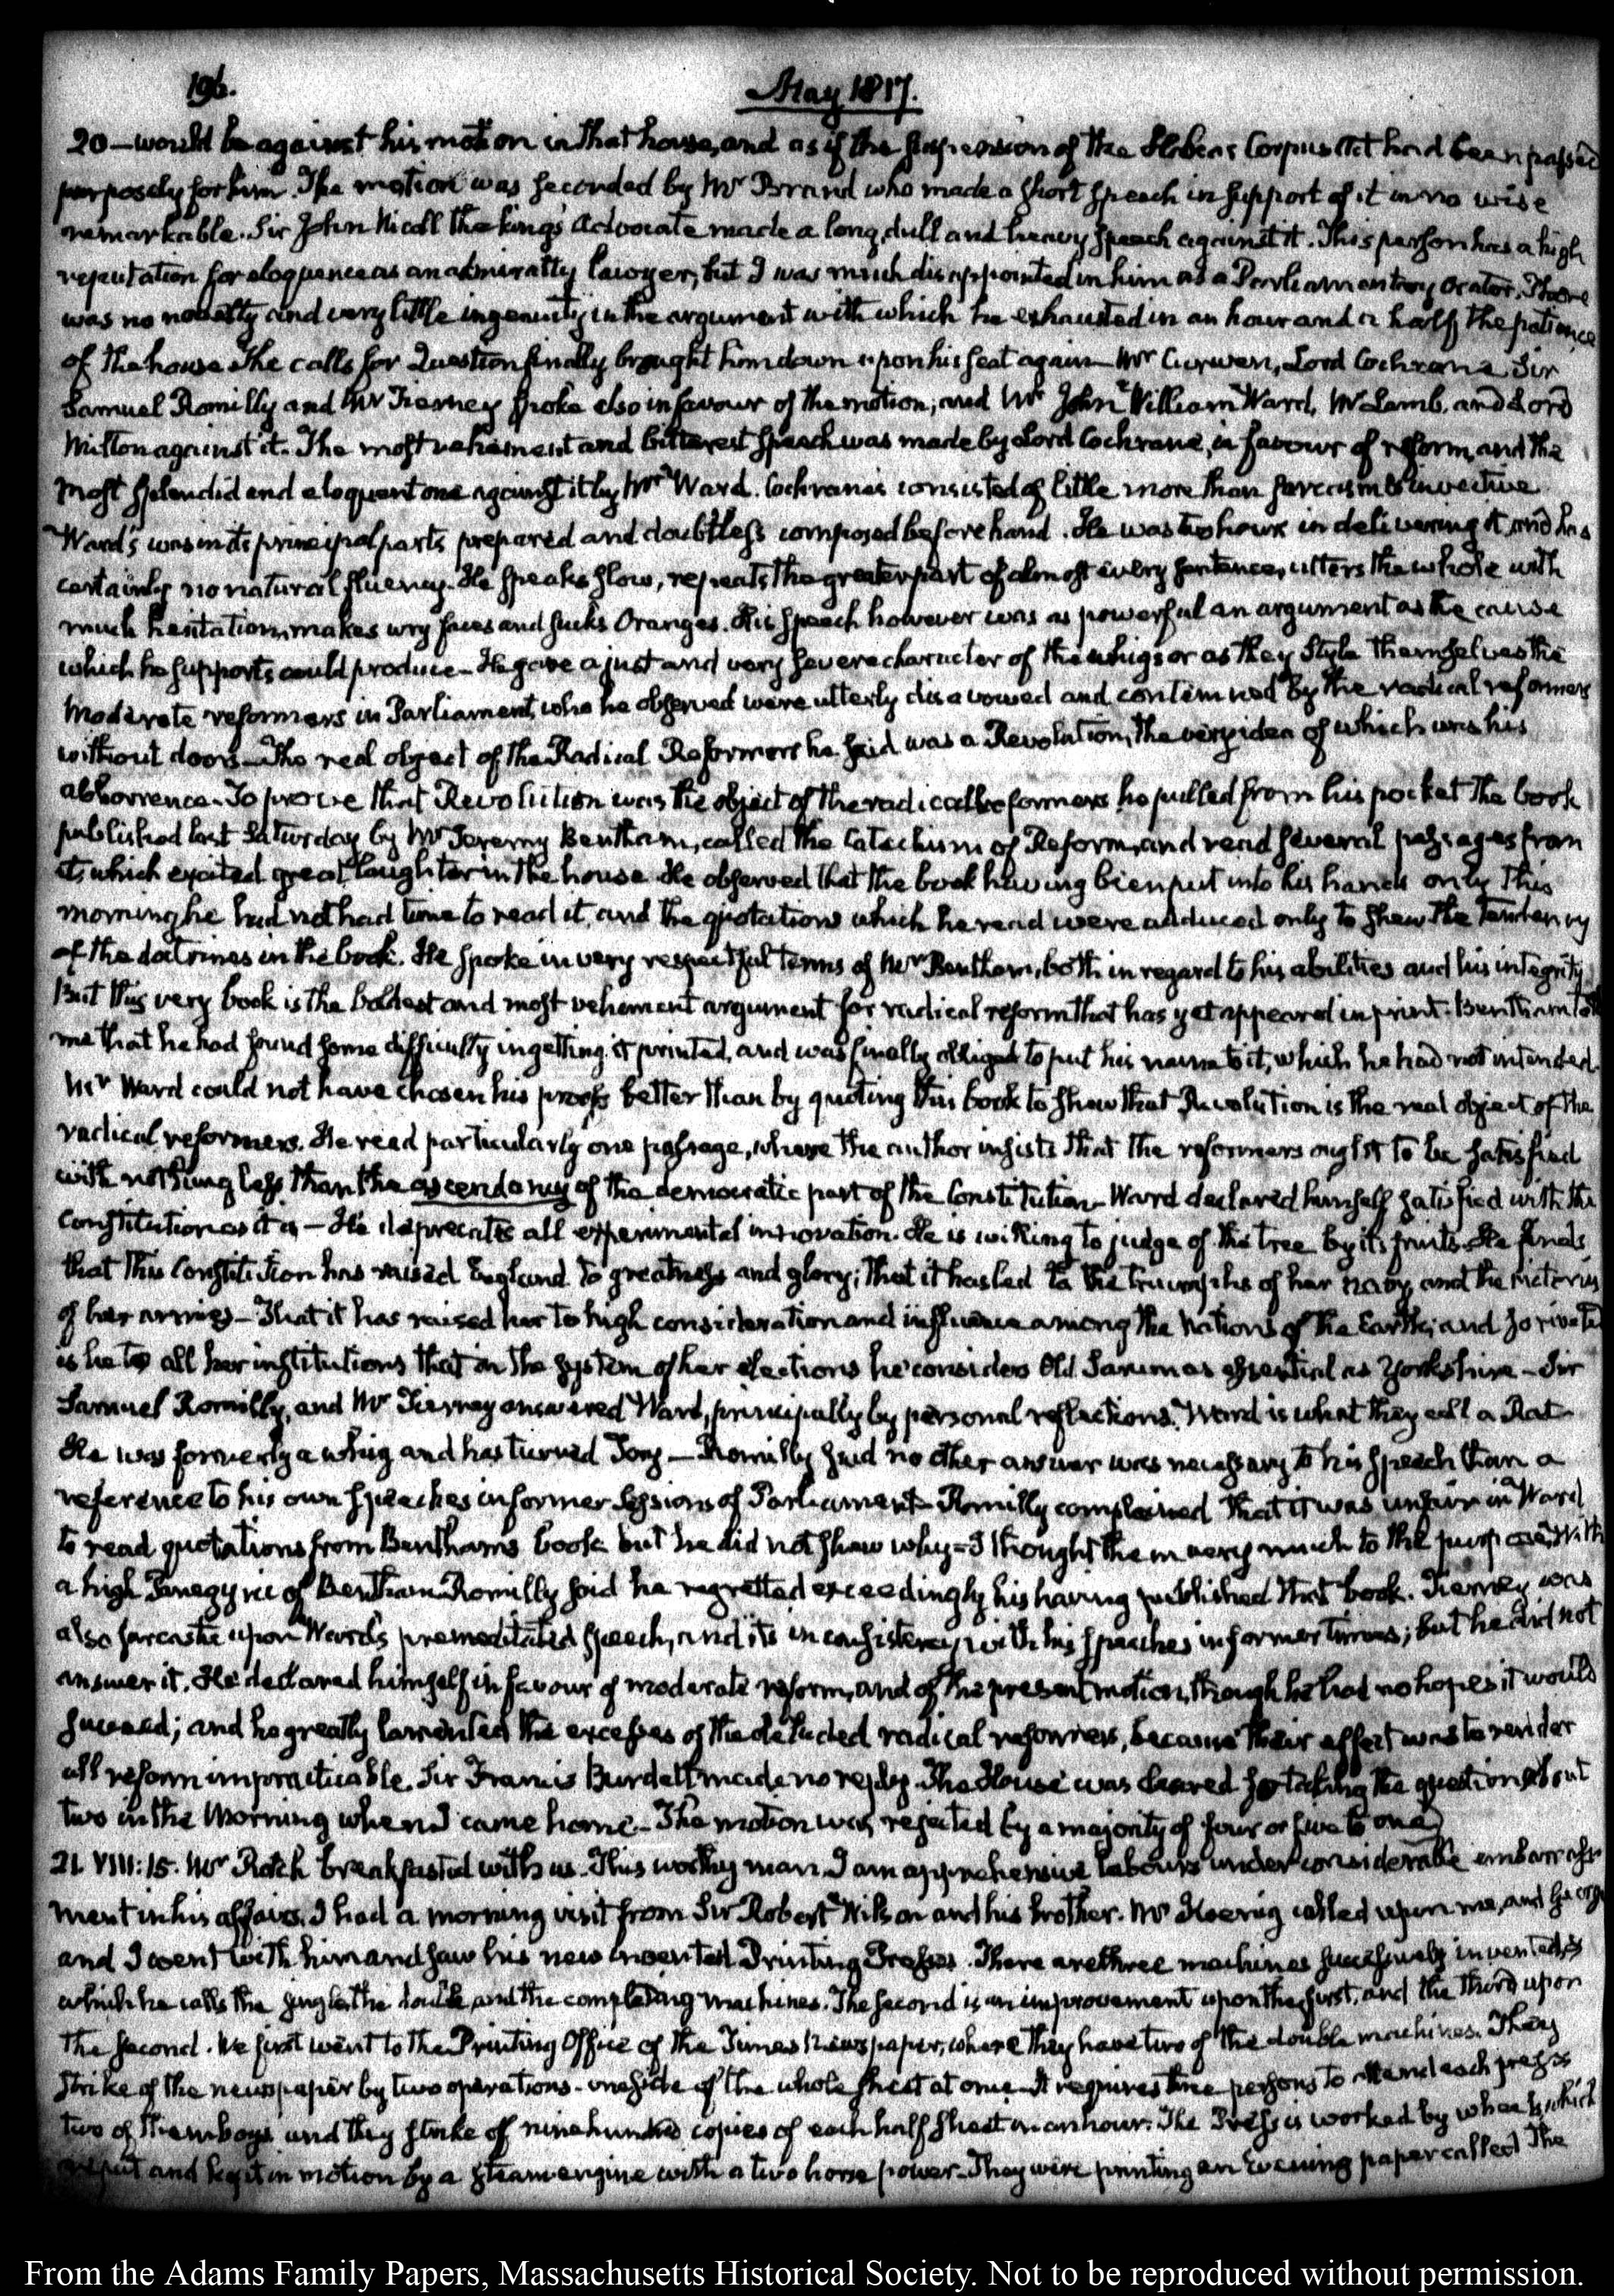 196.
May 1817.
20 — would be against his motion in that house, and as if the suspension of the Habeas Corpus Act had been passed
purposely for him. The motion was seconded by Mr Brand who made a short speech in support of it in no wise
remarkable. Sir John Nicoll the king's Advocate made a long, dull and heavy speech against it. This person has a high
reputation for eloquence as an admiralty lawyer, but I was much disappointed in him as a Parliamentary Orator. There
was no novelty and very little ingenuity in the argument with which he exhausted in an hour and a half the patience
of the house. The calls for Question finally brought him down upon his seat again — Mr Curwen, Lord Cochrane, Sir
Samuel Romilly and Mr Tierney spoke also in favour of the motion; and Mr John William Ward, Mr Lamb, and Lord
Milton against it. The most vehement and bitterest speech was made by Lord Cochrane, in favour of reform, and the
most splendid and eloquent one against it by Mr Ward. Cochrane's consisted of little more than sarcasm & invective
Ward's was in its principal parts prepared and doubtless composed beforehand. He was two hours in delivering it, and has
certainly no natural fluency. He speaks slow, repeats the greater part of almost every sentence, utters the whole with
much hesitation, makes wry faces and sucks Oranges. His speech however was as powerful an argument as the cause
which he supports could produce — He gave a just and very severe character of the whigs or as they style themselves the
Moderate reformers in Parliament, who he observed were utterly disavowed and contemned by the radical reformers
without doors — The real object of the Radical Reformers he said was a Revolution, the very idea of which was his
abhorrence. To prove that Revolution was the object of the radical reformers he pulled from his pocket the book
published last Saturday by Mr Jeremy Bentham, called the Catechism of Reform, and read several passages from
it, which excited great laughter in the house. He observed that the book having been put into his hands only this
morning he had not had time to read it, and the quotations which he read were adduced only to shew the tendency
of the doctrines in the book. He spoke in very respectful terms of Mr Bentham, both in regard to his abilities and his integrity
But this very book is the boldest and most vehement argument for radical reform that has yet appeared in print. Bentham told
me that he had found some difficulty in getting it printed, and was finally obliged to put his name to it, which he had not intended.
Mr Ward could not have chosen his proofs better than by quoting this book to show that Revolution is the real object of the
radical reformers. He read particularly one passage, where the author insists that the reformers ought to be satisfied
with nothing less than the ascendancy of the democratic part of the Constitution — Ward declared himself satisfied with the
Constitution as it is — He deprecates all experimental innovation. He is willing to judge of the tree by its fruits. He finds
that this Constitution has raised England to greatness and glory; that it has led to the triumphs of her navy and the victories
of her armies — That it has raised her to high consideration and influence among the Nations of the Earth; and so riveted
is he to all her institutions that in the system of her elections he considers Old Sarum as essential as Yorkshire — Sir
Samuel Romilly, and Mr Tierney answered Ward, principally by personal reflections. Ward is what they call a Rat
He was formerly a whig and has turned Tory — Romilly said no other answer was necessary to his speech than a
reference to his own speeches in former Sessions of Parliament — Romilly complained that it was unfair in Ward
to read quotations from Bentham's book but he did not shew why = I thought them very much to the purpose. With
a high Panegyric of Bentham Romilly said he regretted exceedingly his having published that book. Tierney was
also sarcastic upon Ward's premeditated speech, and its inconsistency with his speeches in former times; but he did not
answer it. He declared himself in favour of moderate reform, and of the present motion, though he had no hopes it would
succeed; and he greatly lamented the excesses of the deluded radical reformers, because their effect was to render
all reform impracticable. Sir Francis Burdett made no reply. The House was cleared for taking the question about
two in the Morning when I came home — The motion was rejected by a majority of four or five to one.
21. VIII:15. Mr Rotch breakfasted with us. This worthy man I am apprehensive labours under considerable embarrass-
ment in his affairs. I had a morning visit from Sir Robert Wilson and his brother. Mr Koenig called upon me, and George
and I went with him and saw his new invented Printing Presses. There are three machines successively invented,
which he calls the single, the double, and the completing machines. The second is an improvement upon the first, and the third upon
the second. We first went to the Printing Office of the Times Newspaper, where they have two of the double machines. They
strike of the newspaper by two operations — one side of the whole sheet at once. It requires three persons to attend each press
two of them boys and they strike of nine hundred copies of each half sheet in an hour. The Press is worked by wheels which
are put and kept in motion by a steam engine with a two horse power. They were printing an Evening paper called The
From the Adams Family Papers, Massachusetts Historical Society. Not to be reproduced without permission.